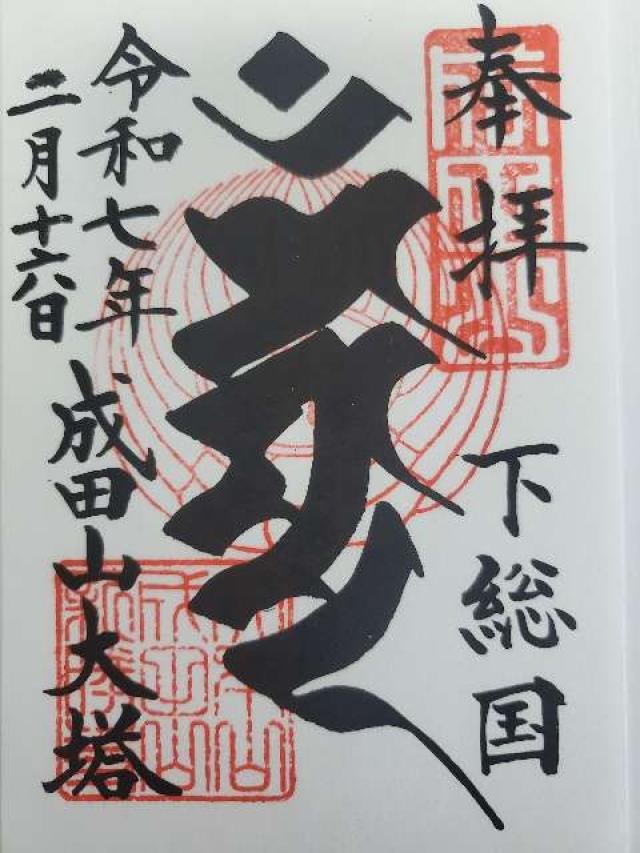 奉拝
下総国
令和七年
二月十六日
成田山大塔